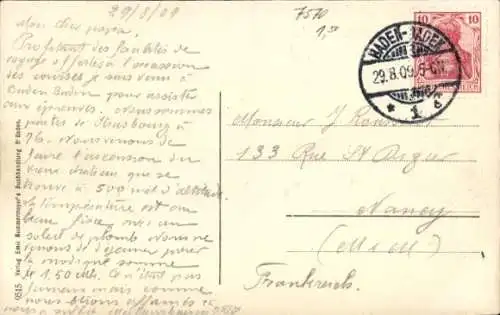 29/8/09
Mon cher papa,
Profitant des facilités de
voyage offertes à l'occasion
des courses je suis venu à
Baden Baden pour assister
aux épreuves. Nous sommes
partis de Strasbourg à
9h. Nous venons de
faire l'ascension du
vieux château que se
trouve à 500 m d'altitude
la température est au
beau fixe, avec un
soleil de plomb. Nous ve
nons de déjeuner pour
la modique somme
de 1.50
jamais mais comme
nous étions affamés
7570
1,50
BADEN-BADEN
29.8.09. 5-6N.
* 1 c
10
10
Monsieur J
133 Rue St Dizier
Nancy
(M et M)
Frankreich.
9515 Verlag Emil Sommermeyer's Buchhandlung B Baden.